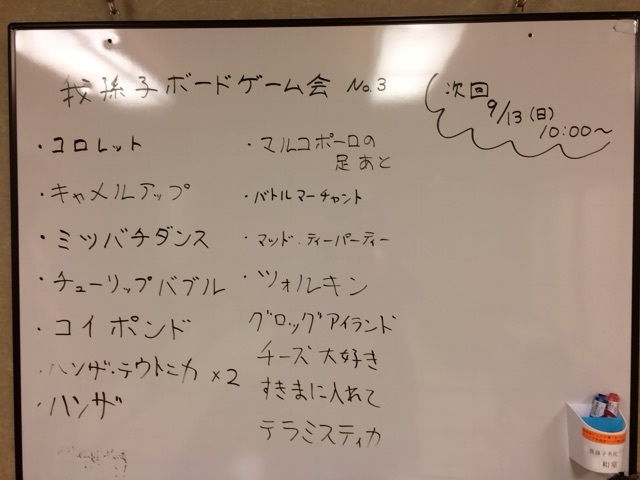 我孫子ボードゲーム会 No.3
次回
9/13(日)
10:00~
・コロレット
・キャメルアップ
・ミツバチダンス
・チューリップバブル
・コイポンド
・ハンザ・テウトニカ ×2
・ハンザ
・マルコポーロの
足あと
・バトルマーチャント
・マッド・ティーパーティー
・ツォルキン
グロッグアイランド
チーズ大好き
すきまに入れて
テラミスティカ
和室